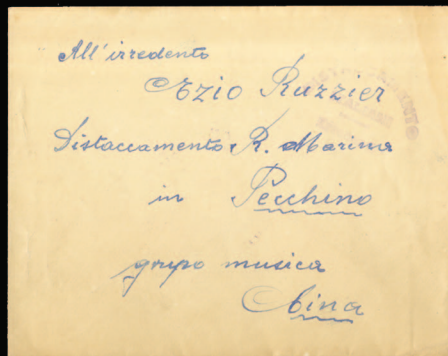 All'irredento
Ezio Ruzzier
Distaccamento R. Marina
in Pecchino
grupo musica
Cina